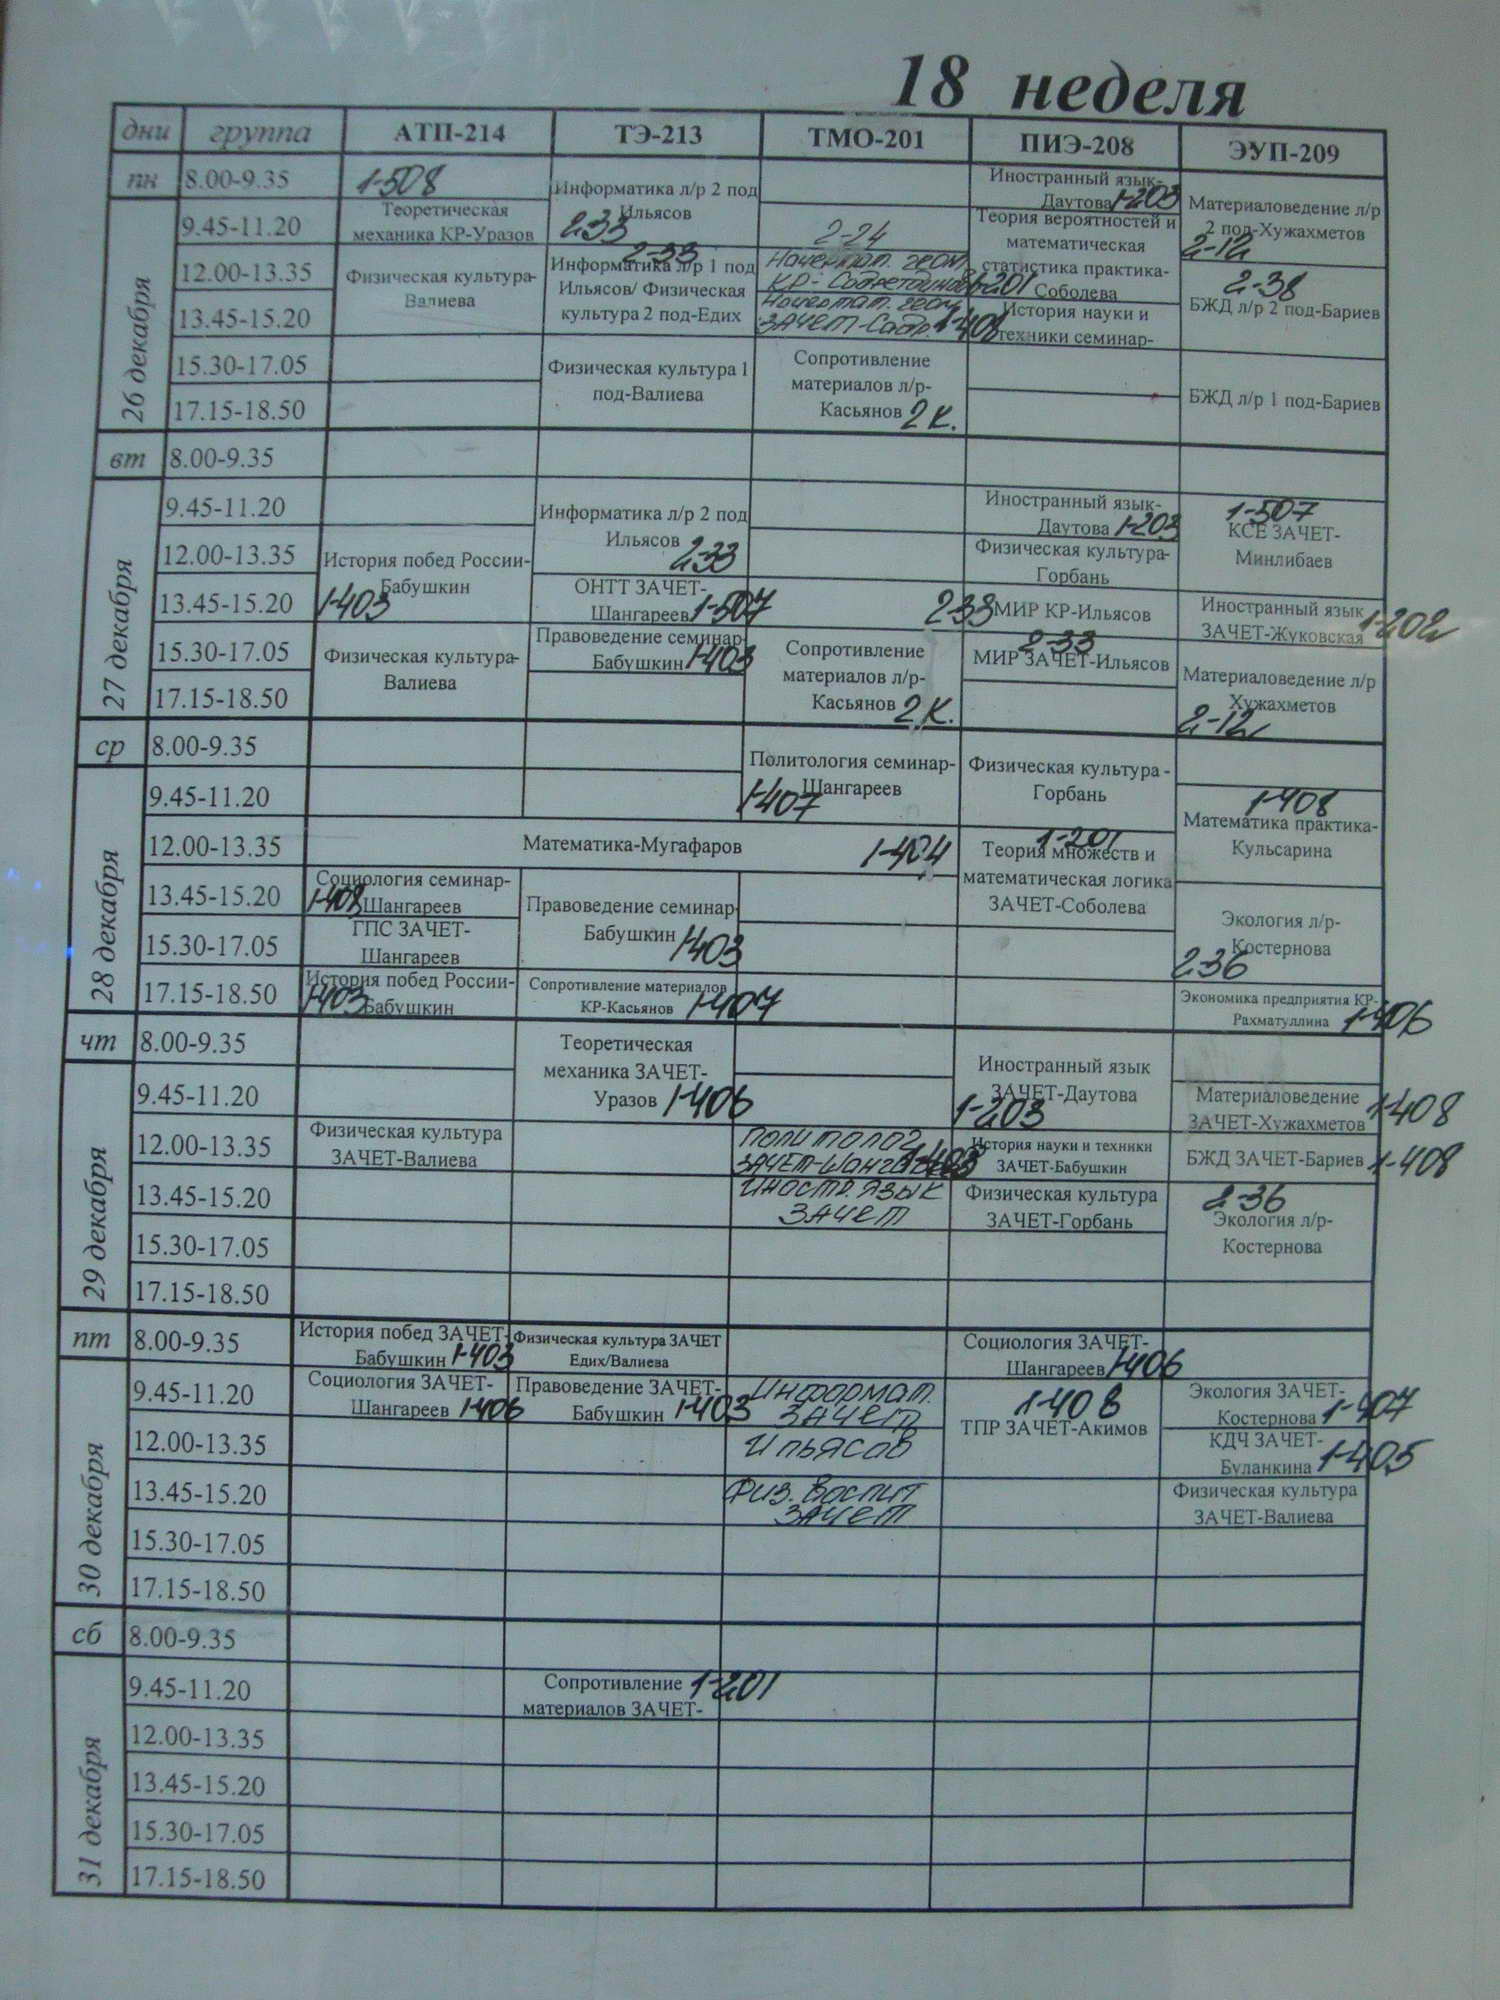 18 неделя
дни группа АТП-214 ТЭ-213 ТМО-201 ПИЭ-208 ЭУП-209
пн 8.00-9.35 1-508
Информатика л/р 2 под
Ильясов
2-33
Иностранный язык-
Даутова 1-203
Материаловедение л/р
2 под-Хужахметов
2-12
26 декабря
9.45-11.20
Теоретическая
механика КР-Уразов
2-24
Теория вероятностей и
математическая
статистика практика-
Соболева
1-201
12.00-13.35
Физическая культура-
Валиева
2-33
Информатика л/р 1 под
Ильясов/ Физическая
культура 2 под-Едих
Начертат. геом.
КР-
2-38
БЖД л/р 2 под-Бариев
13.45-15.20
Начертат. геом
ЗАЧЕТ-Садр. 1-408
История науки и
техники семинар-
15.30-17.05
Физическая культура 1
под-Валиева
Сопротивление
материалов л/р-
Касьянов 2 К.
БЖД л/р 1 под-Бариев
17.15-18.50
вт 8.00-9.35
27 декабря
9.45-11.20
Информатика л/р 2 под
Ильясов 2-33
Иностранный язык-
Даутова 1-203
1-507
КСЕ ЗАЧЕТ-
Минлибаев
12.00-13.35
История побед России-
Бабушкин
1-403
Физическая культура-
Горбань
13.45-15.20
ОНТТ ЗАЧЕТ-
Шангареев 1-507
233 МИР КР-Ильясов
Иностранный язык
ЗАЧЕТ-Жуковская 1-202
15.30-17.05
Физическая культура-
Валиева
Правоведение семинар-
Бабушкин 1-403
Сопротивление
материалов л/р-
Касьянов 2 К.
2-33
МИР ЗАЧЕТ-Ильясов
Материаловедение л/р
Хужахметов
2-12
17.15-18.50
ср 8.00-9.35
Политология семинар-
Шангареев
1-407
Физическая культура -
Горбань
28 декабря
9.45-11.20
1-408
Математика практика-
Кульсарина
12.00-13.35
Математика-Мугафаров 1-404
1-201
Теория множеств и
математическая логика
ЗАЧЕТ-Соболева
13.45-15.20
Социология семинар-
1-408 Шангареев
Правоведение семинар-
Бабушкин 1-403
Экология л/р-
Костернова
236
15.30-17.05
ГПС ЗАЧЕТ-
Шангареев
17.15-18.50
История побед России-
1-403 Бабушкин
Сопротивление материалов
КР-Касьянов 1-407
Экономика предприятия КР-
Рахматуллина 1-406
чт 8.00-9.35
Теоретическая
механика ЗАЧЕТ-
Уразов 1-406
Иностранный язык
ЗАЧЕТ-Даутова
1-203
29 декабря
9.45-11.20
Материаловедение
ЗАЧЕТ-Хужахметов 1-408
12.00-13.35
Физическая культура
ЗАЧЕТ-Валиева
Политолог
ЗАЧЕТ-
История науки и техники
ЗАЧЕТ-Бабушкин
БЖД ЗАЧЕТ-Бариев 1-408
13.45-15.20
Иностр. язык
ЗАЧЕТ
Физическая культура
ЗАЧЕТ-Горбань
2-36
Экология л/р-
Костернова
15.30-17.05
17.15-18.50
пт 8.00-9.35
История побед ЗАЧЕТ-
Бабушкин 1-403
Физическая культура ЗАЧЕТ
Едих/Валиева
Социология ЗАЧЕТ-
Шангареев 1-406
30 декабря
9.45-11.20
Социология ЗАЧЕТ-
Шангареев 1-406
Правоведение ЗАЧЕТ-
Бабушкин 1-403
Информат.
ЗАЧЕТ
1-408
ТПР ЗАЧЕТ-Акимов
Экология ЗАЧЕТ-
Костернова 1-407
12.00-13.35
Ильясов
КДЧ ЗАЧЕТ-
Буланкина 1-405
13.45-15.20
Физ. воспит
ЗАЧЕТ
Физическая культура
ЗАЧЕТ-Валиева
15.30-17.05
17.15-18.50
сб 8.00-9.35
31 декабря
9.45-11.20
Сопротивление 1-201
материалов ЗАЧЕТ-
12.00-13.35
13.45-15.20
15.30-17.05
17.15-18.50